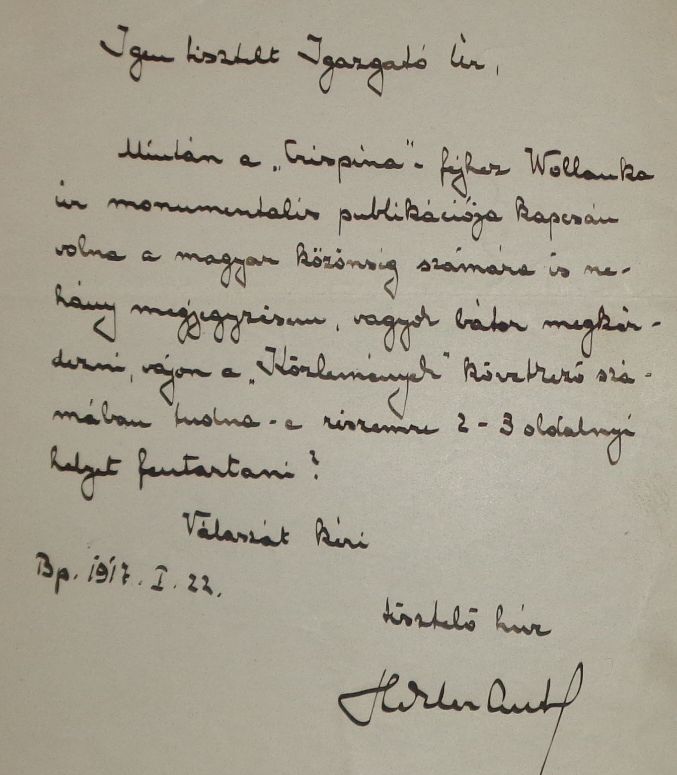 Igen tisztelt Igazgató Úr,
Miután a „Crispina"-fejhez Wollanka
úr monumentalis publikációja kapcsán
volna a magyar közönség számára is ne-
hány megjegyzésem, vagyok bátor megkér-
dezni, vájon a „Közlemények" következő szá-
mában tudna-e részemre 2-3 oldalnyi
helyet fentartani?
Válaszát kéri
Bp. 1917. I. 22.
tisztelő híve
Hekler Ant